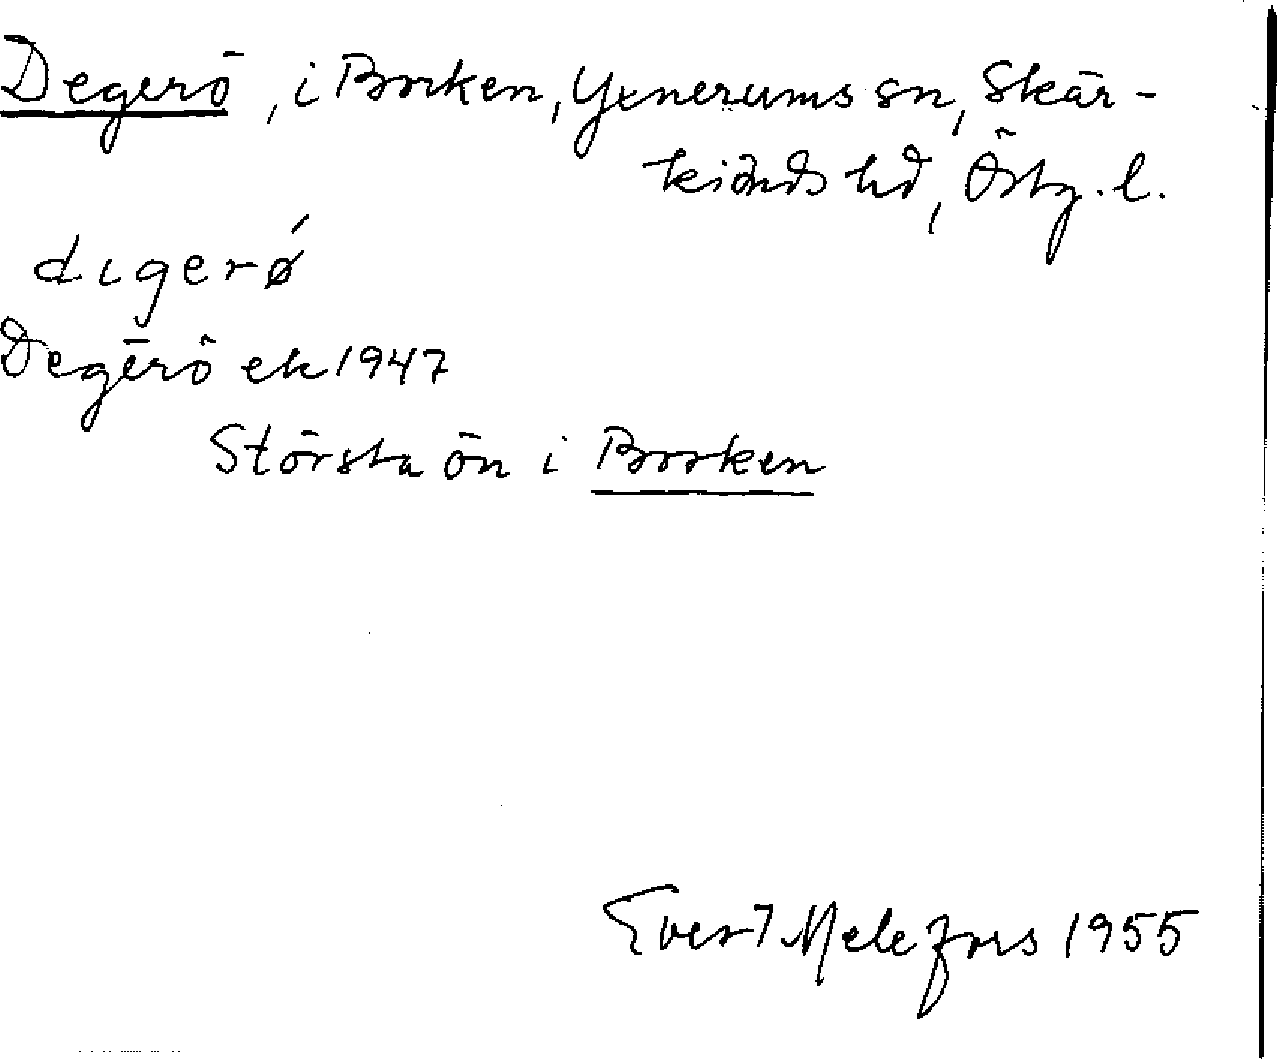 Degerö, i Borken, Yxnerums sn, Skär-
kinds hd, Östg. l.
dıgerǿ
Degerö ek 1947
Största ön i Borken
Evert Melefors 1955